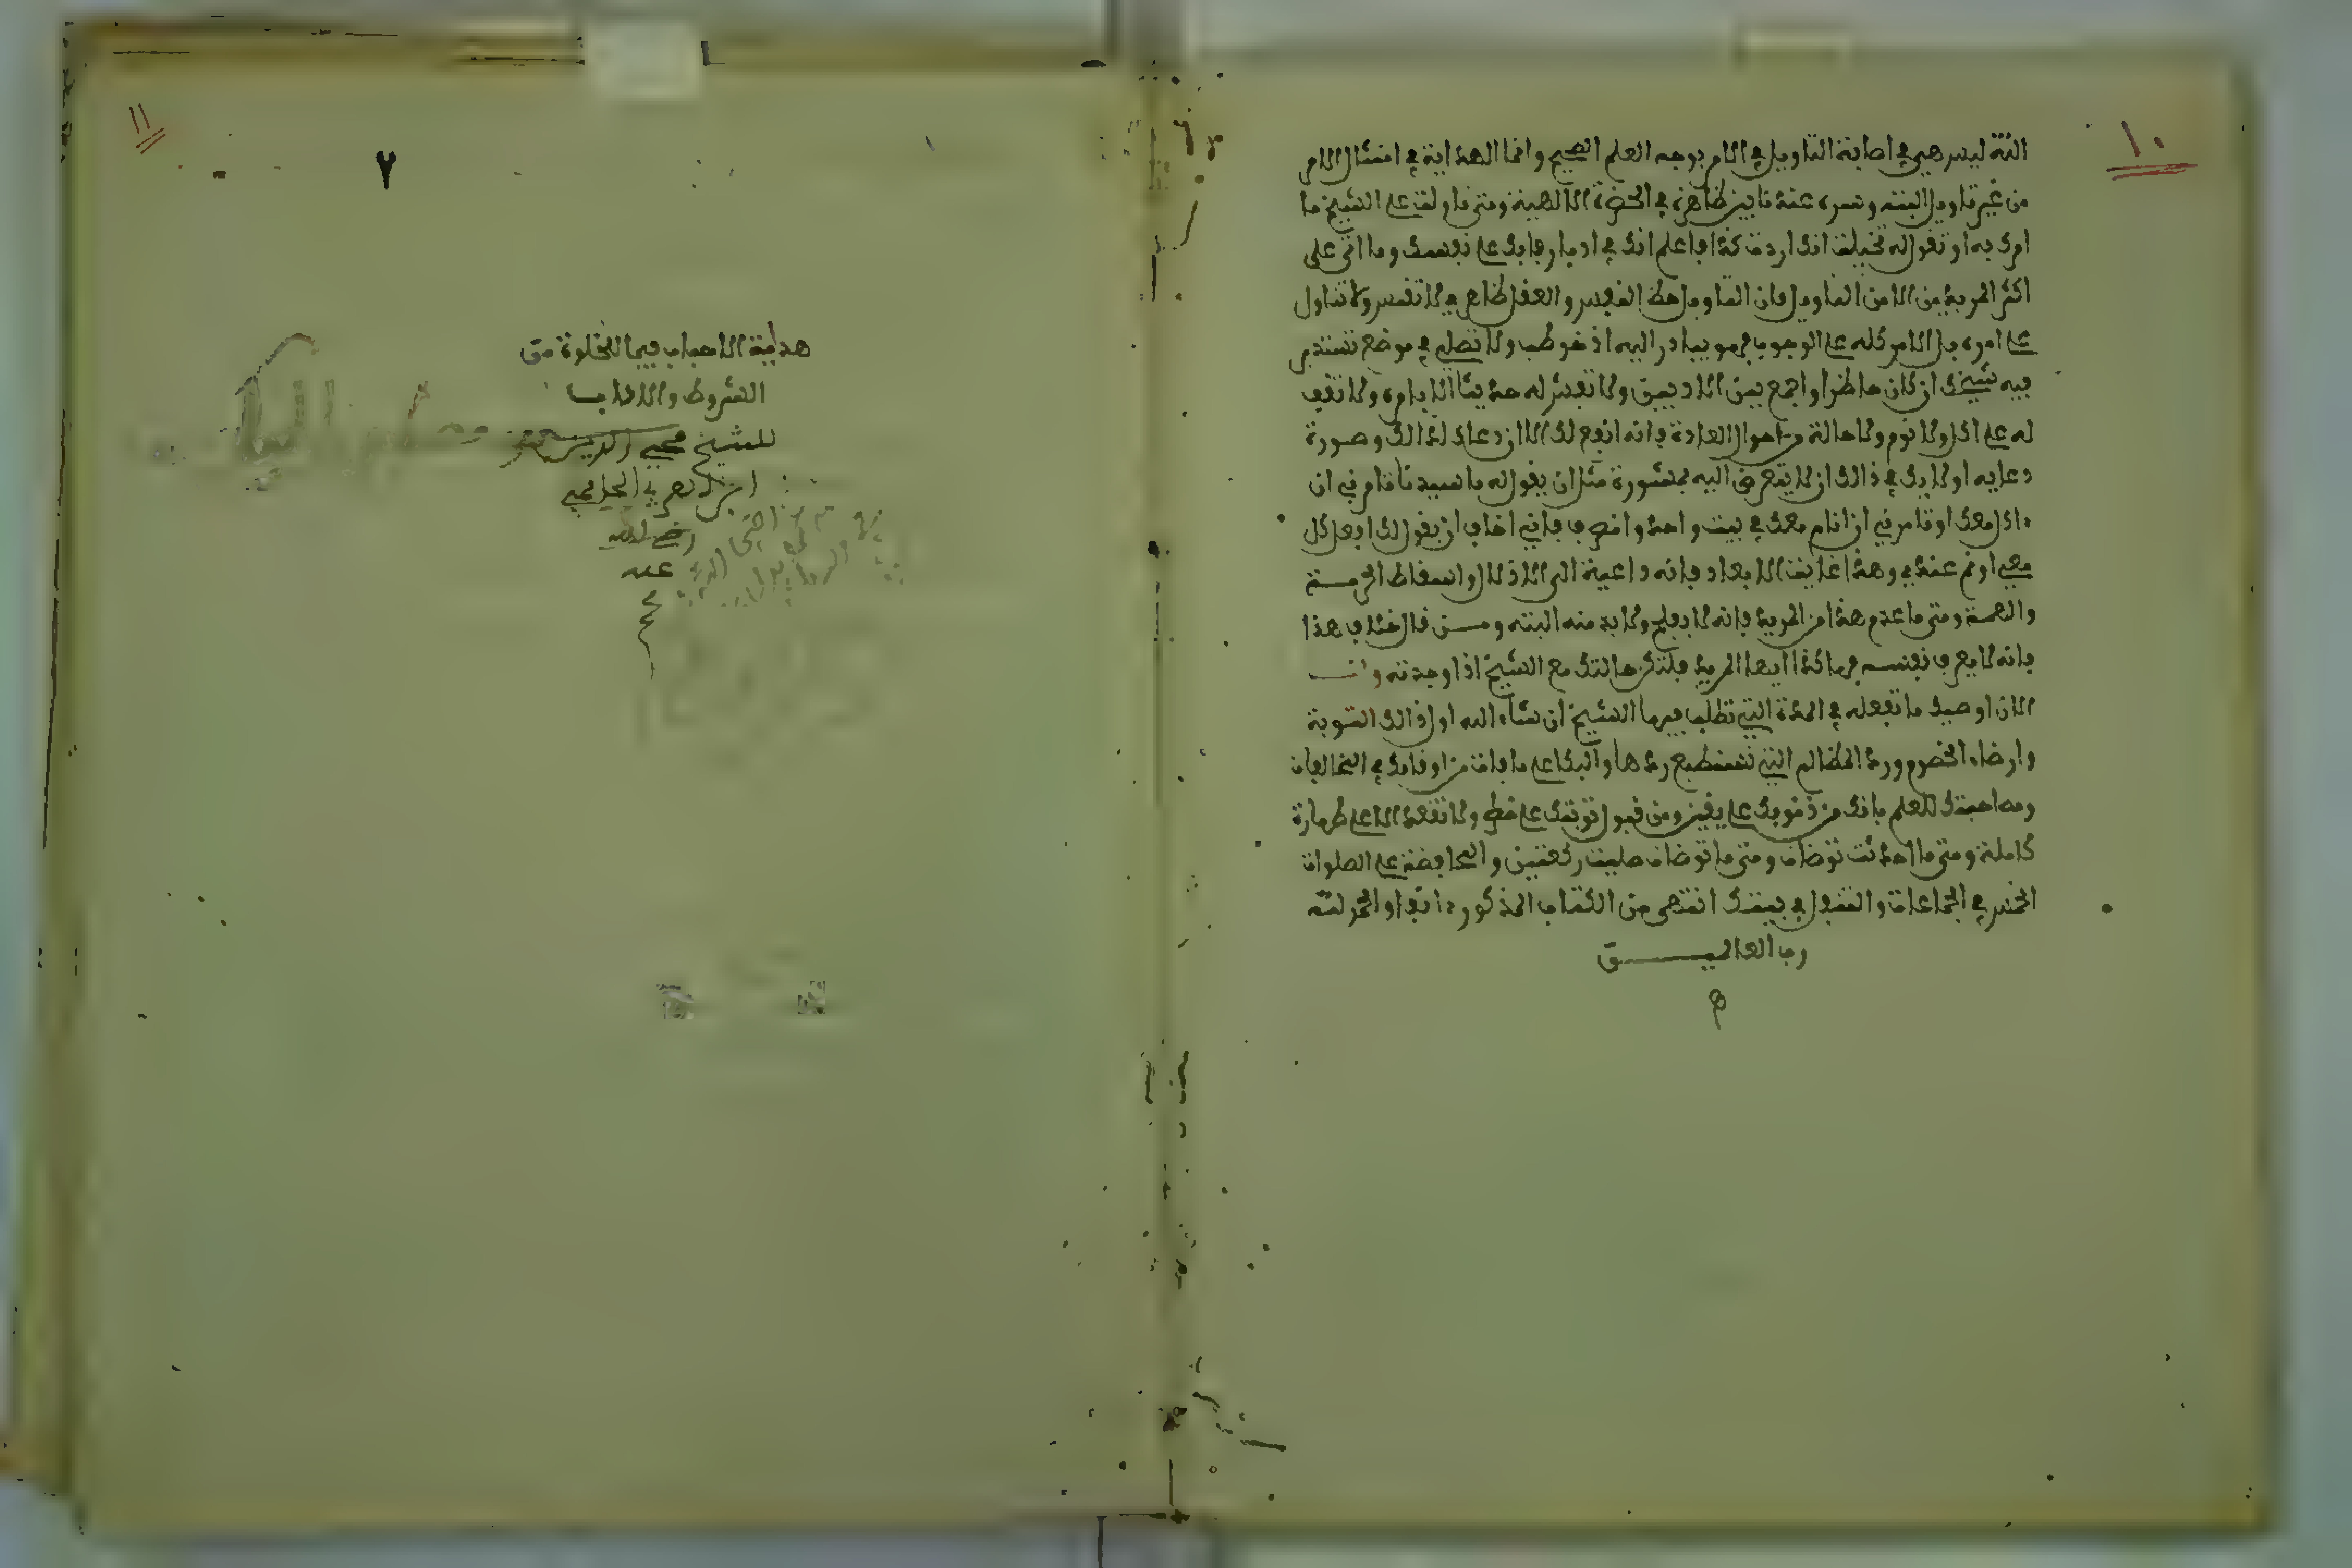 ١٠
الله ليس هي في اصابة التاويل في الامر بوجه العلم الصحيح وانما الهداية في امتثال الامر
من غير تاويل البتة وتسره عنه ظاهرة في الحضرة الالهية ومتى تاولت على الشيخ ما
امرك به او تقول له تخيلت انك اردت كذا فاعلم انك في ادبار فابك على نفسك وما اتى على
اكثر المريدين الا من التاويل فان التاويل حظ النفس والعقل
على امره بل الامر كله على الوجوب فهو يبادر اليه اذ خوطب ولا تصلي في موضع تستدبر
فيه شيخك ان كان حاضرا واجمع بين الادبين ولا تفش له حديثا الا بامره ولا تقف
له على اكل ولا نوم ولا حالة من احوال العادة فانه انفع لك الا ان دعاك لذالك وصورة
دعايه اولا بك في ذالك ان لا يتعرض اليه بمشورة مثل ان يقول له يا سيدنا تامرني ان
ءاكل معك او تامرني ان انام معك في بيت واحد وانصرف فاني اخاف ان يقول لك افعل كل
معي او نم عندي وهذا غاية الابعاد فانه داعية الى الاذلال واسقاط الحرمة
والهمة ومتى ما عدم هذا من المريد فانه لا يفلح ولا بد منه البتة ومن قال خلاف هذا
فانه لا يعرف نفسه فهاكذا ايها المريد فلتكن حالتك مع الشيخ اذا وجدته وانت
الان اوصيك ما تفعله في المدة التي تطلب فيها الشيخ ان شاء الله اول ذالك التوبة
وارضاء الخصوم ورد المظالم التي تستطيع ردها والبكا على ما فات من اوقاتك في المخالفات
ومصاحبتك للعلم بانك من ذنوبك على يقين ومن قبول توبتك على خطر ولا تقعد الا على طهارة
كاملة ومتى ما احدثت توضات ومتى ما توضات صليت ركعتين والمحافظة على الصلوات
الخمس في الجماعات والتنفل في بيتك انتهى من الكتاب المذكور ءانفا والحمد لله
رب العالمين
١١
٧
هداية الاحباب فيما للخلوة من
الشروط والاداب
للشيخ محيي الدين
ابن العربي الحاتمي
رضي الله
عنه